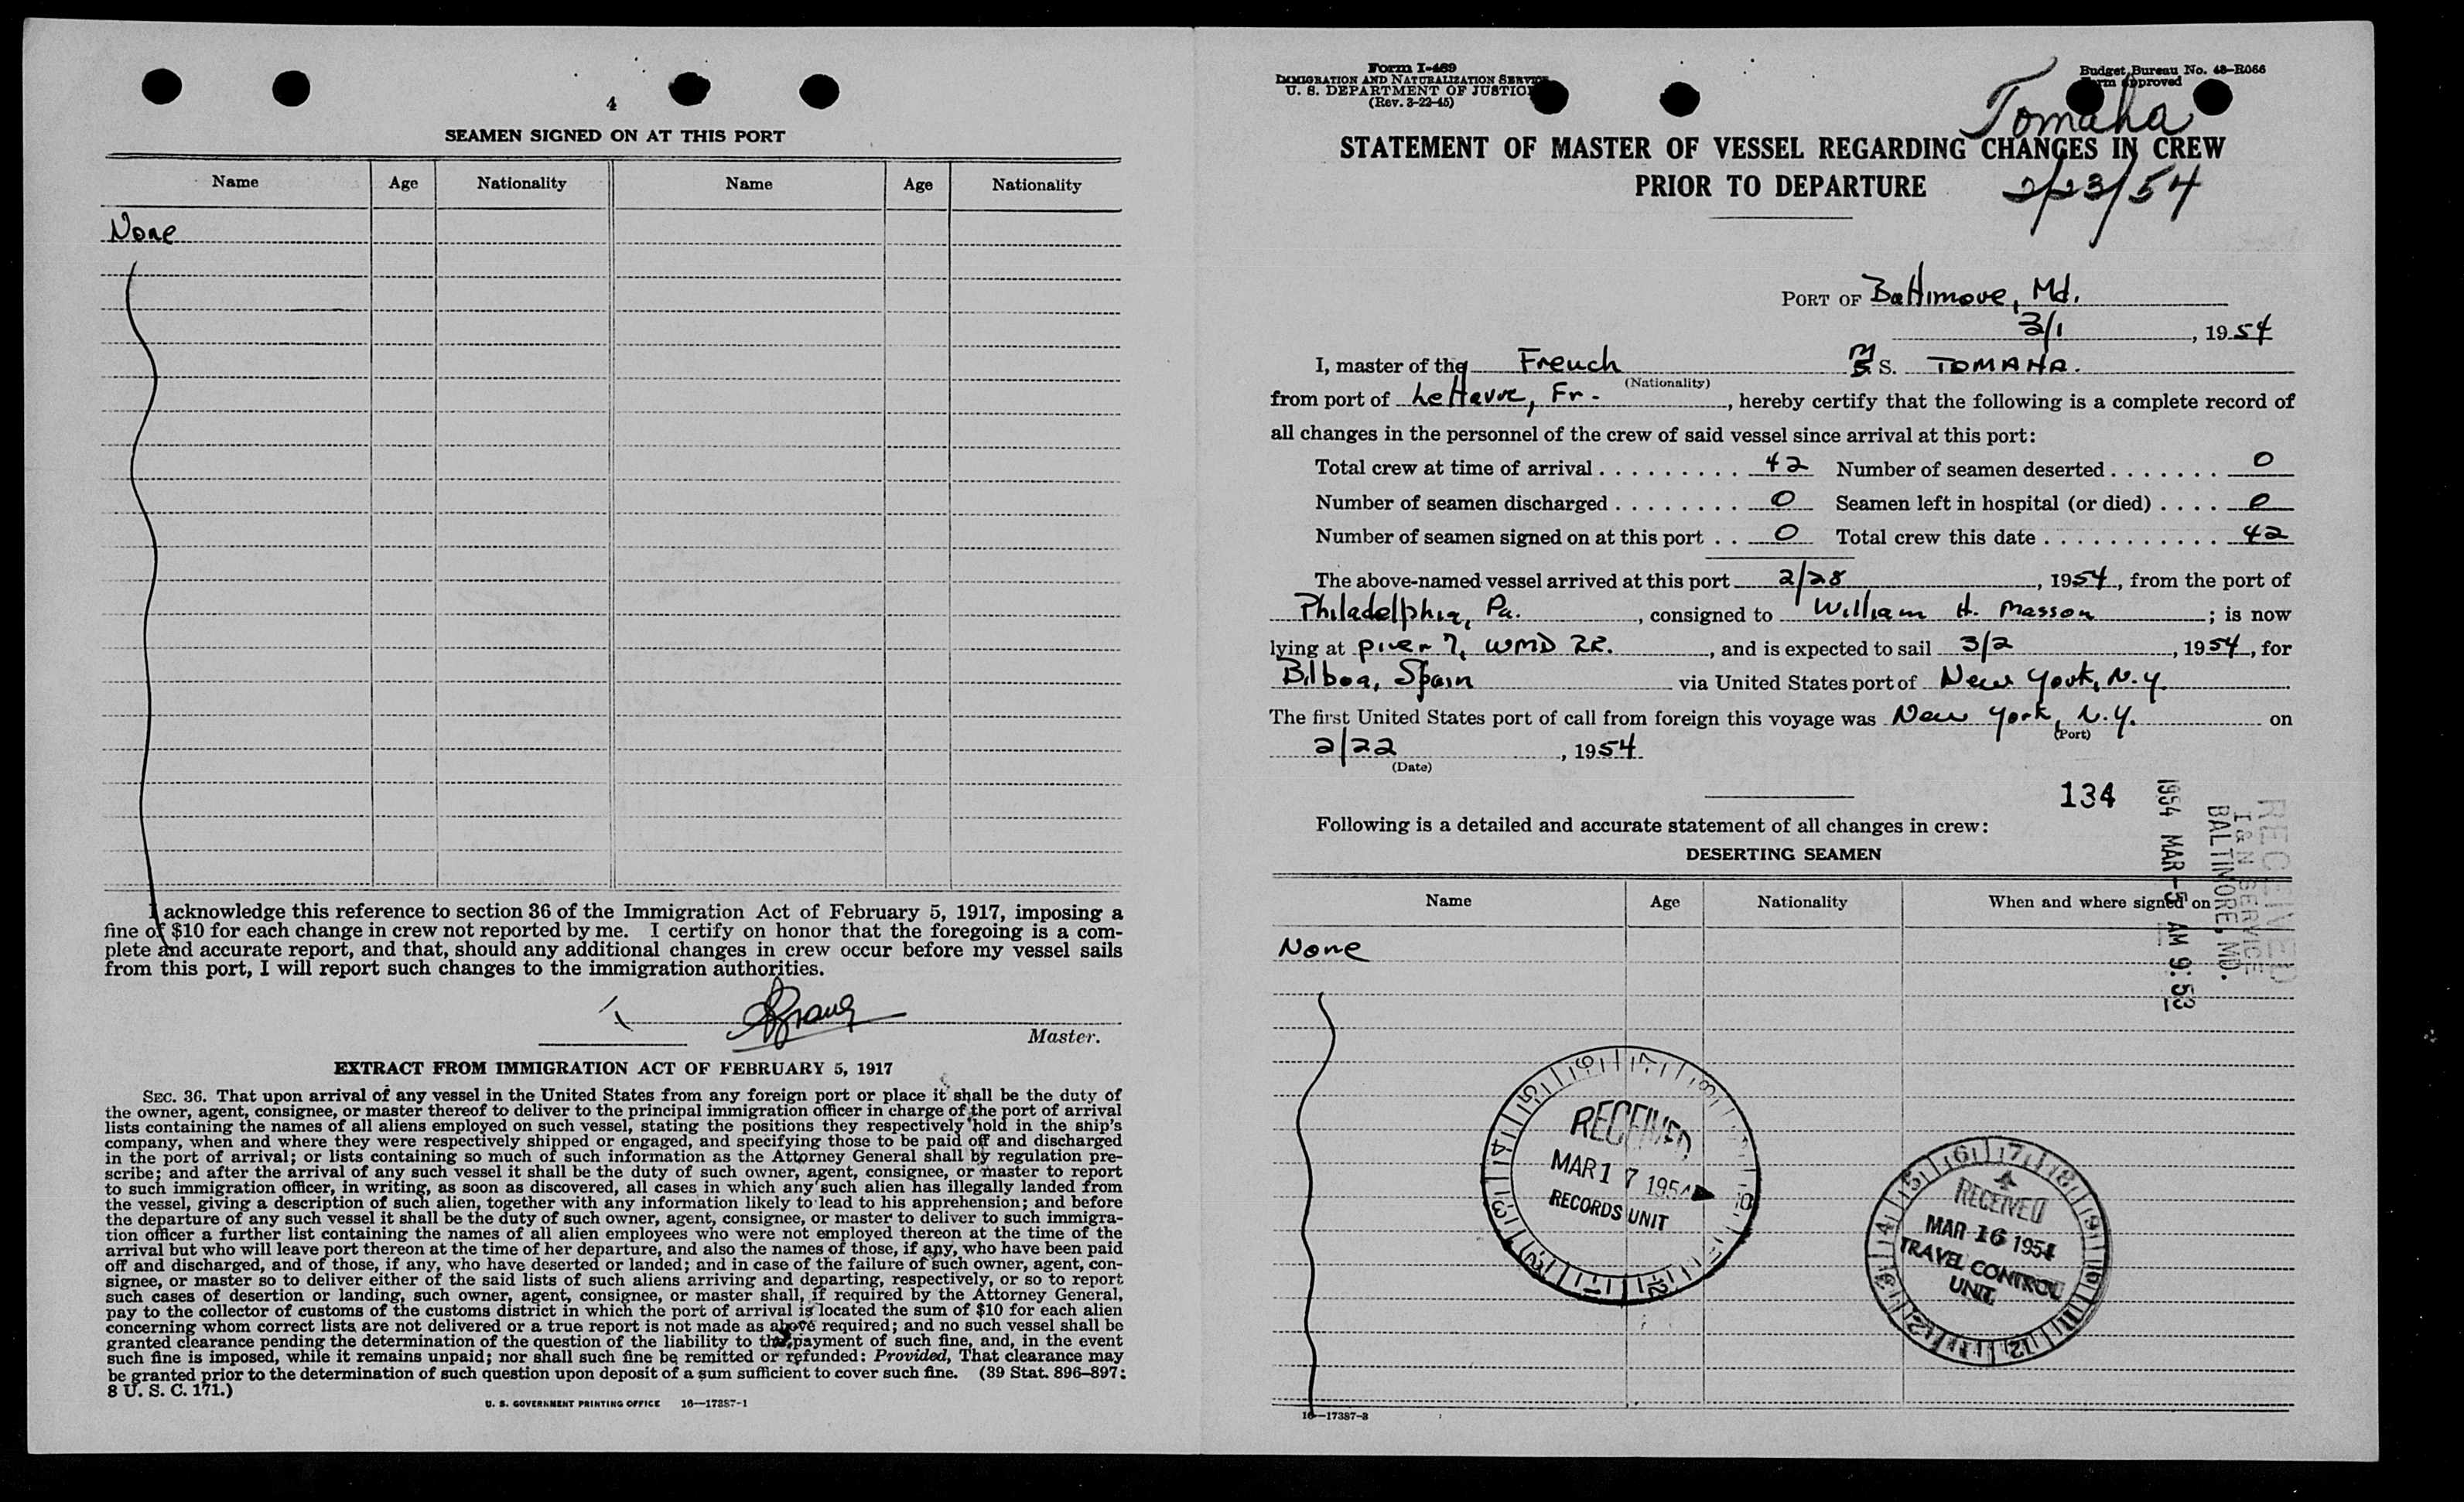 4
SEAMEN SIGNED ON AT THIS PORT
Name Age Nationality Name Age Nationality
None
I acknowledge this reference to section 36 of the Immigration Act of February 5, 1917, imposing a
fine of $10 for each change in crew not reported by me. I certify on honor that the foregoing is a com-
plete and accurate report, and that, should any additional changes in crew occur before my vessel sails
from this port, I will report such changes to the immigration authorities.
Master.
EXTRACT FROM IMMIGRATION ACT OF FEBRUARY 5, 1917
SEC. 36. That upon arrival of any vessel in the United States from any foreign port or place it shall be the duty of
the owner, agent, consignee, or master thereof to deliver to the principal immigration officer in charge of the port of arrival
lists containing the names of all aliens employed on such vessel, stating the positions they respectively hold in the ship's
company, when and where they were respectively shipped or engaged, and specifying those to be paid off and discharged
in the port of arrival; or lists containing so much of such information as the Attorney General shall by regulation pre-
scribe; and after the arrival of any such vessel it shall be the duty of such owner, agent, consignee, or master to report
to such immigration officer, in writing, as soon as discovered, all cases in which any such alien has illegally landed from
the vessel, giving a description of such alien, together with any information likely to lead to his apprehension; and before
the departure of any such vessel it shall be the duty of such owner, agent, consignee, or master to deliver to such immigra-
tion officer a further list containing the names of all alien employees who were not employed thereon at the time of the
arrival but who will leave port thereon at the time of her departure, and also the names of those, if any, who have been paid
off and discharged, and of those, if any, who have deserted or landed; and in case of the failure of such owner, agent, con-
signee, or master so to deliver either of the said lists of such aliens arriving and departing, respectively, or so to report
such cases of desertion or landing, such owner, agent, consignee, or master shall, if required by the Attorney General,
pay to the collector of customs of the customs district in which the port of arrival is located the sum of $10 for each alien
concerning whom correct lists are not delivered or a true report is not made as above required; and no such vessel shall be
granted clearance pending the determination of the question of the liability to the payment of such fine, and, in the event
such fine is imposed, while it remains unpaid; nor shall such fine be remitted or refunded: Provided, That clearance may
be granted prior to the determination of such question upon deposit of a sum sufficient to cover such fine. (39 Stat. 896–897;
8 U. S. C. 171.)
U. S. GOVERNMENT PRINTING OFFICE 16—17387-1
Form I-489
IMMIGRATION AND NATURALIZATION SERVICE
U. S. DEPARTMENT OF JUSTICE
(Rev. 3-22-45)
Budget Bureau No. 43–R066
Form approved
Tomaha
STATEMENT OF MASTER OF VESSEL REGARDING CHANGES IN CREW
PRIOR TO DEPARTURE
2/23/54
PORT OF Baltimore, Md.
3/1, 1954
I, master of the French M S. TOMAHA.
(Nationality)
from port of Le Havre, Fr., hereby certify that the following is a complete record of
all changes in the personnel of the crew of said vessel since arrival at this port:
Total crew at time of arrival . . . . . . . . . 42 Number of seamen deserted . . . . . . . 0
Number of seamen discharged . . . . . . . . 0 Seamen left in hospital (or died) . . . . 0
Number of seamen signed on at this port . . 0 Total crew this date . . . . . . . . . . . 42
The above-named vessel arrived at this port 2/28, 1954, from the port of
Philadelphia, Pa., consigned to William H. Masson; is now
lying at pier 7, WMD RR., and is expected to sail 3/2, 1954, for
Bilboa, Spain via United States port of New York, N.Y.
The first United States port of call from foreign this voyage was New York, N.Y. on
(Port)
2/22, 1954.
(Date)
134
RECEIVED
I & N SERVICE
BALTIMORE, MD.
1954 MAR -5 AM 9:53
Following is a detailed and accurate statement of all changes in crew:
DESERTING SEAMEN
Name Age Nationality When and where signed on
None
RECEIVED
MAR 17 1954
RECORDS UNIT
RECEIVED
MAR 16 1954
TRAVEL CONTROL
UNIT
16—17387-3